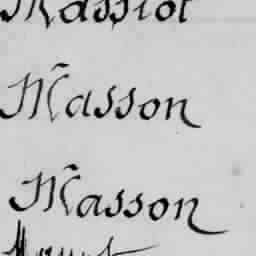 Massiot
Masson
Masson